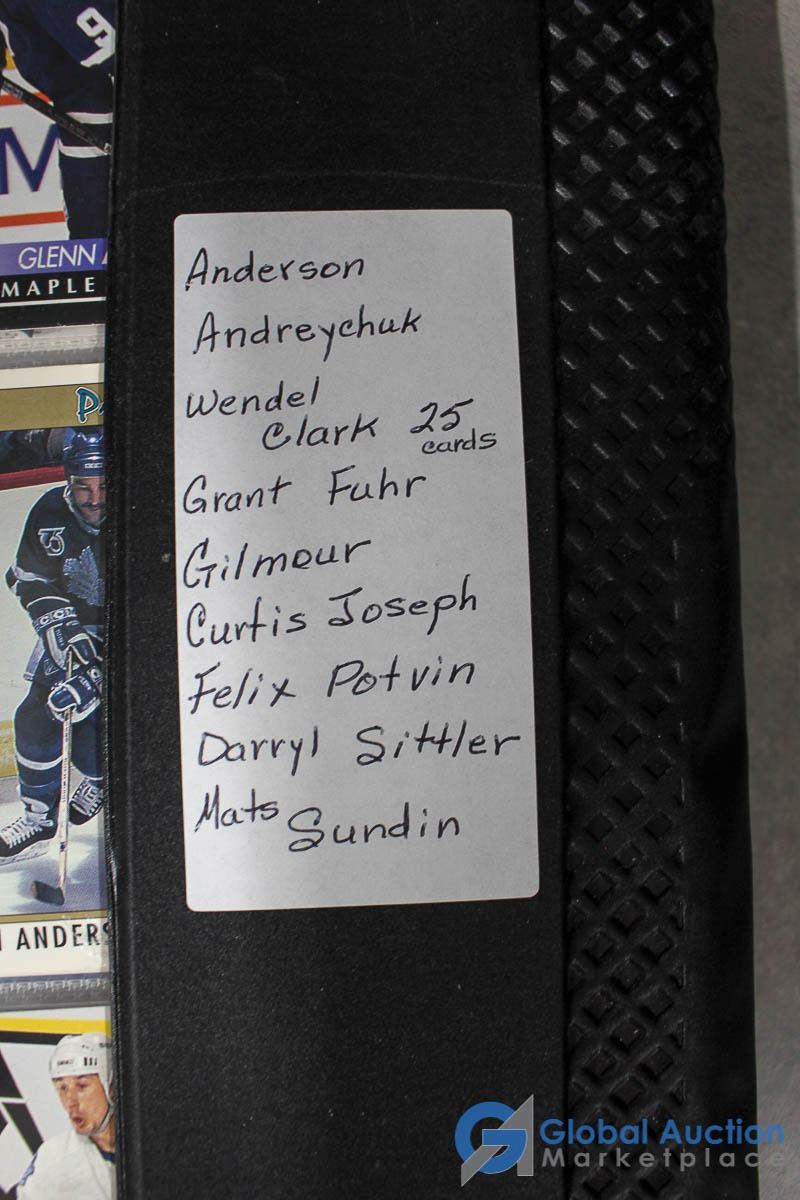 9
M
GLENN A
MAPLE
PA
75
CCM
N ANDERS
Anderson
Andreychuk
Wendel
Clark 25
cards
Grant Fuhr
Gilmour
Curtis Joseph
Felix Potvin
Darryl Sittler
Mats Sundin
Global Auction
Marketplace